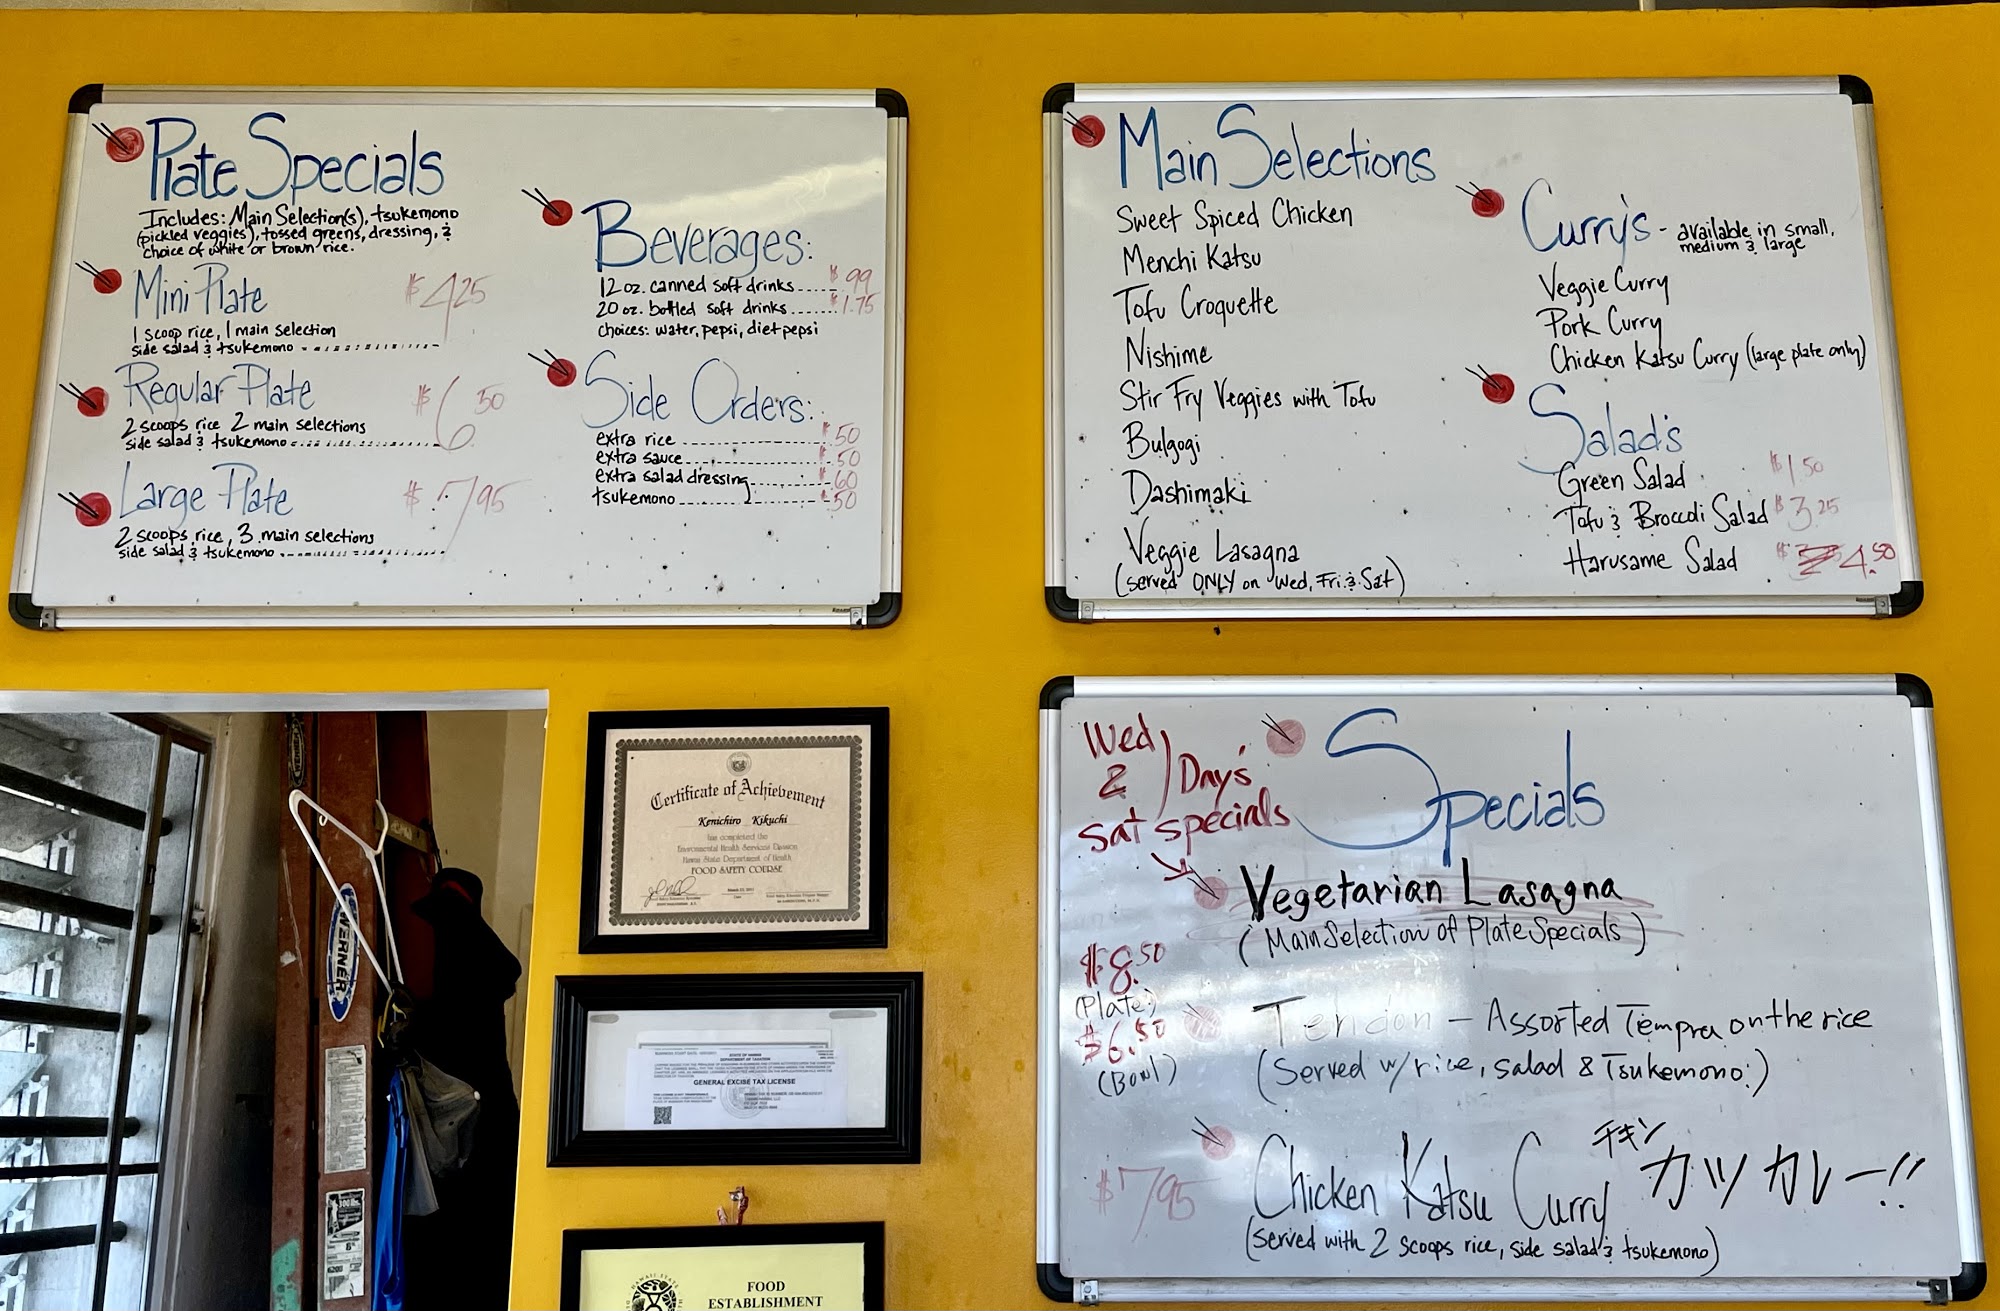 Plate Specials
Includes: Main Selection(s), tsukemono
(pickled veggies), tossed greens, dressing, &
choice of white or brown rice.
Mini Plate $4.25
1 scoop rice, 1 main selection
side salad & tsukemono
Regular Plate $6.50
2 scoops rice 2 main selections
side salad & tsukemono
Large Plate $7.95
2 scoops rice, 3 main selections
side salad & tsukemono
Beverages:
12 oz. canned soft drinks $.99
20 oz. bottled soft drinks $1.75
choices: water, pepsi, diet pepsi
Side Orders:
extra rice $.50
extra sauce $.50
extra salad dressing $.60
tsukemono $.50
Main Selections
Sweet Spiced Chicken
Menchi Katsu
Tofu Croquette
Nishime
Stir Fry Veggies with Tofu
Bulgogi
Dashimaki
Veggie Lasagna
(served ONLY on Wed, Fri & Sat)
Curry's - available in small,
medium & large
Veggie Curry
Pork Curry
Chicken Katsu Curry (large plate only)
Salad's
Green Salad $1.50
Tofu & Broccoli Salad $3.25
Harusame Salad $4.50
Wed
&
Sat
Day's
specials
Specials
Vegetarian Lasagna
(Main Selection of Plate Specials)
$8.50
(Plate)
$6.50
(Bowl)
Tendon - Assorted Tempra on the rice
(Served w/ rice, salad & Tsukemono.)
$7.95
Chicken Katsu Curry チキン カツカレー!!
(served with 2 scoops rice, side salad & tsukemono)
Certificate of Achievement
Kenichiro Kikuchi
has completed the
Environmental Health Services Division
Hawaii State Department of Health
FOOD SAFETY COURSE
STATE OF HAWAII
DEPARTMENT OF TAXATION
GENERAL EXCISE TAX LICENSE
FOOD
ESTABLISHMENT
WERNER